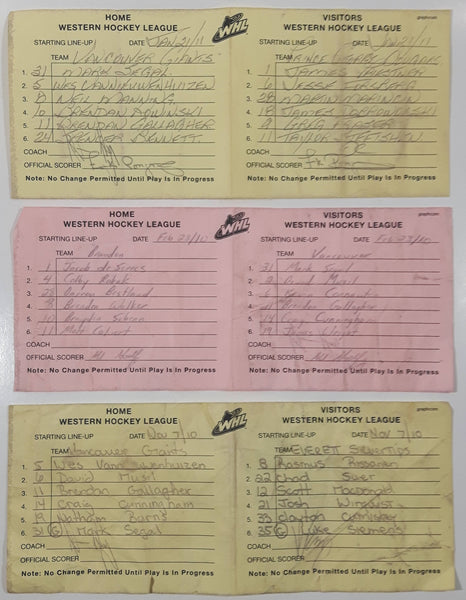 HOME
WESTERN HOCKEY LEAGUE
STARTING LINE-UP DATE JAN 21/11
TEAM VANCOUVER GIANTS
1. 31 MARK SEGAL
2. 5 WES VANNIEUWENHUIZEN
3. 8 NEIL MANNING
4. BRENDAN ROWINSKI
5. 11 BRENDAN GALLAGHER
6. 24 SPENCER BENNETT
COACH
OFFICIAL SCORER
Note: No Change Permitted Until Play Is In Progress
WHL
VISITORS
WESTERN HOCKEY LEAGUE
STARTING LINE-UP DATE
TEAM PRINCE COUGARS
1. 1 JAMES
2. 6 JESSE FORSBERG
3. 28 MARTIN MARINCIN
4. 18 JAMES
5. 9 GREG FRASER
6. 11 TAYLOR
COACH
OFFICIAL SCORER
Note: No Change Permitted Until Play Is In Progress
HOME
WESTERN HOCKEY LEAGUE
STARTING LINE-UP DATE Feb 23/10
TEAM Brandon
1. 1 Jacob de Serres
2. 4 Colby Robak
3. 28 Darren Bestland
4. 8 Brendan Walker
5. 10 Brayden Schenn
6. 11 Matt Calvert
COACH
OFFICIAL SCORER
Note: No Change Permitted Until Play Is In Progress
WHL
VISITORS
graphcom
WESTERN HOCKEY LEAGUE
STARTING LINE-UP DATE Feb 23/10
TEAM Vancouver
1. 31 Mark Segal
2. David Musil
3. Kevin Connauton
4. Brendan Gallagher
5. 14 Craig Cunningham
6. 19 James Wright
COACH
OFFICIAL SCORER
Note: No Change Permitted Until Play Is In Progress
HOME
WESTERN HOCKEY LEAGUE
STARTING LINE-UP DATE Nov 7/10
TEAM Vancouver Giants
1. 5 Wes Vannieuwenhuizen
2. 6 David Musil
3. 11 Brendan Gallagher
4. 14 Craig Cunningham
5. 19 Nathan Burns
6. 31 G Mark Segal
COACH
OFFICIAL SCORER
Note: No Change Permitted Until Play Is In Progress
WHL
VISITORS
graphcom
WESTERN HOCKEY LEAGUE
STARTING LINE-UP DATE Nov 7/10
TEAM EVERETT SILVERTIPS
1. 8 Rasmus Rissanen
2. 22 Chad Suer
3. 12 Scott MacDonald
4. 21 Josh Winquist
5. 33 Clayton Cumiskey
6. 35 G Luke Siemens
COACH
OFFICIAL SCORER
Note: No Change Permitted Until Play Is In Progress